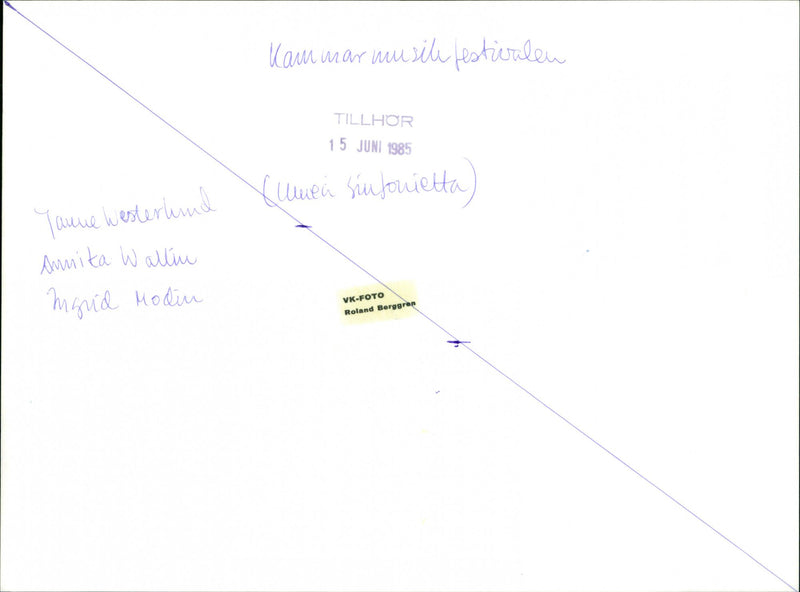 Kammarmusikfestivalen
TILLHÖR
15 JUNI 1985
(Umeå Sinfonietta)
Janne Westerlund
Annika Wallin
Ingrid Modin
VK-FOTO
Roland Berggren